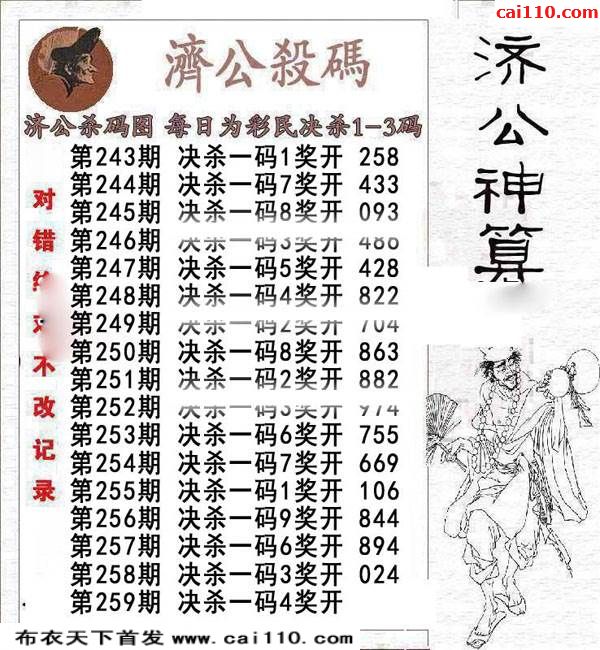 cai110.com
濟公殺碼
济公杀码图 每日为彩民决杀1-3码
第243期 决杀一码1奖开 258
第244期 决杀一码7奖开 433
第245期 决杀一码8奖开 093
第246期 决杀一码3奖开 486
第247期 决杀一码5奖开 428
第248期 决杀一码4奖开 822
第249期 决杀一码2奖开 704
第250期 决杀一码8奖开 863
第251期 决杀一码2奖开 882
第252期 决杀一码3奖开 974
第253期 决杀一码6奖开 755
第254期 决杀一码7奖开 669
第255期 决杀一码1奖开 106
第256期 决杀一码9奖开 844
第257期 决杀一码6奖开 894
第258期 决杀一码3奖开 024
第259期 决杀一码4奖开
对错 不改记录
济公神算
布衣天下首发 www.cai110.com